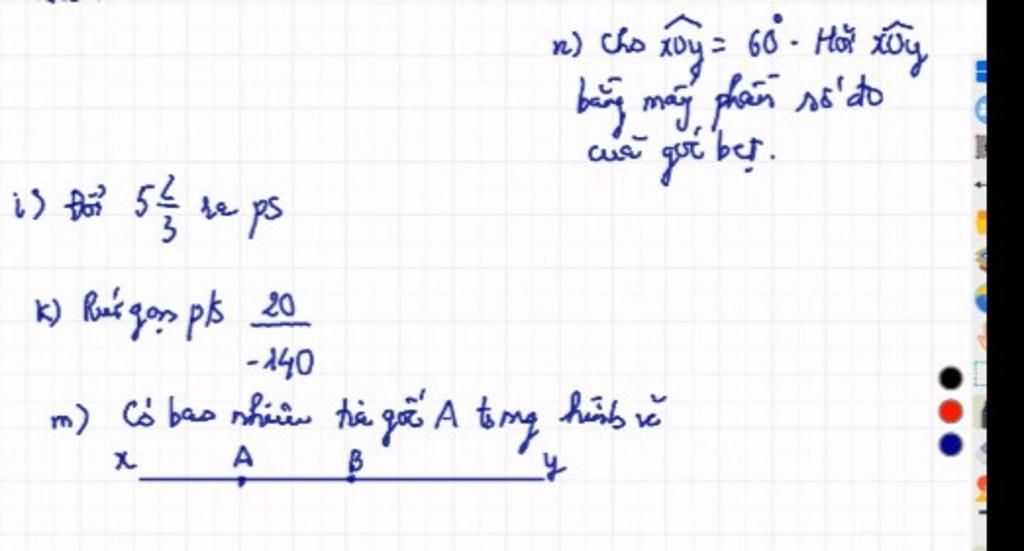 n) Cho xOy = 60°. Hỏi xOy
bằng mấy phần số đo
của góc bẹt.
i) Đổi 5 2/3 ra ps
k) Rút gọn p/s 20/-140
m) Có bao nhiêu tia gốc A trong hình vẽ
x A B y